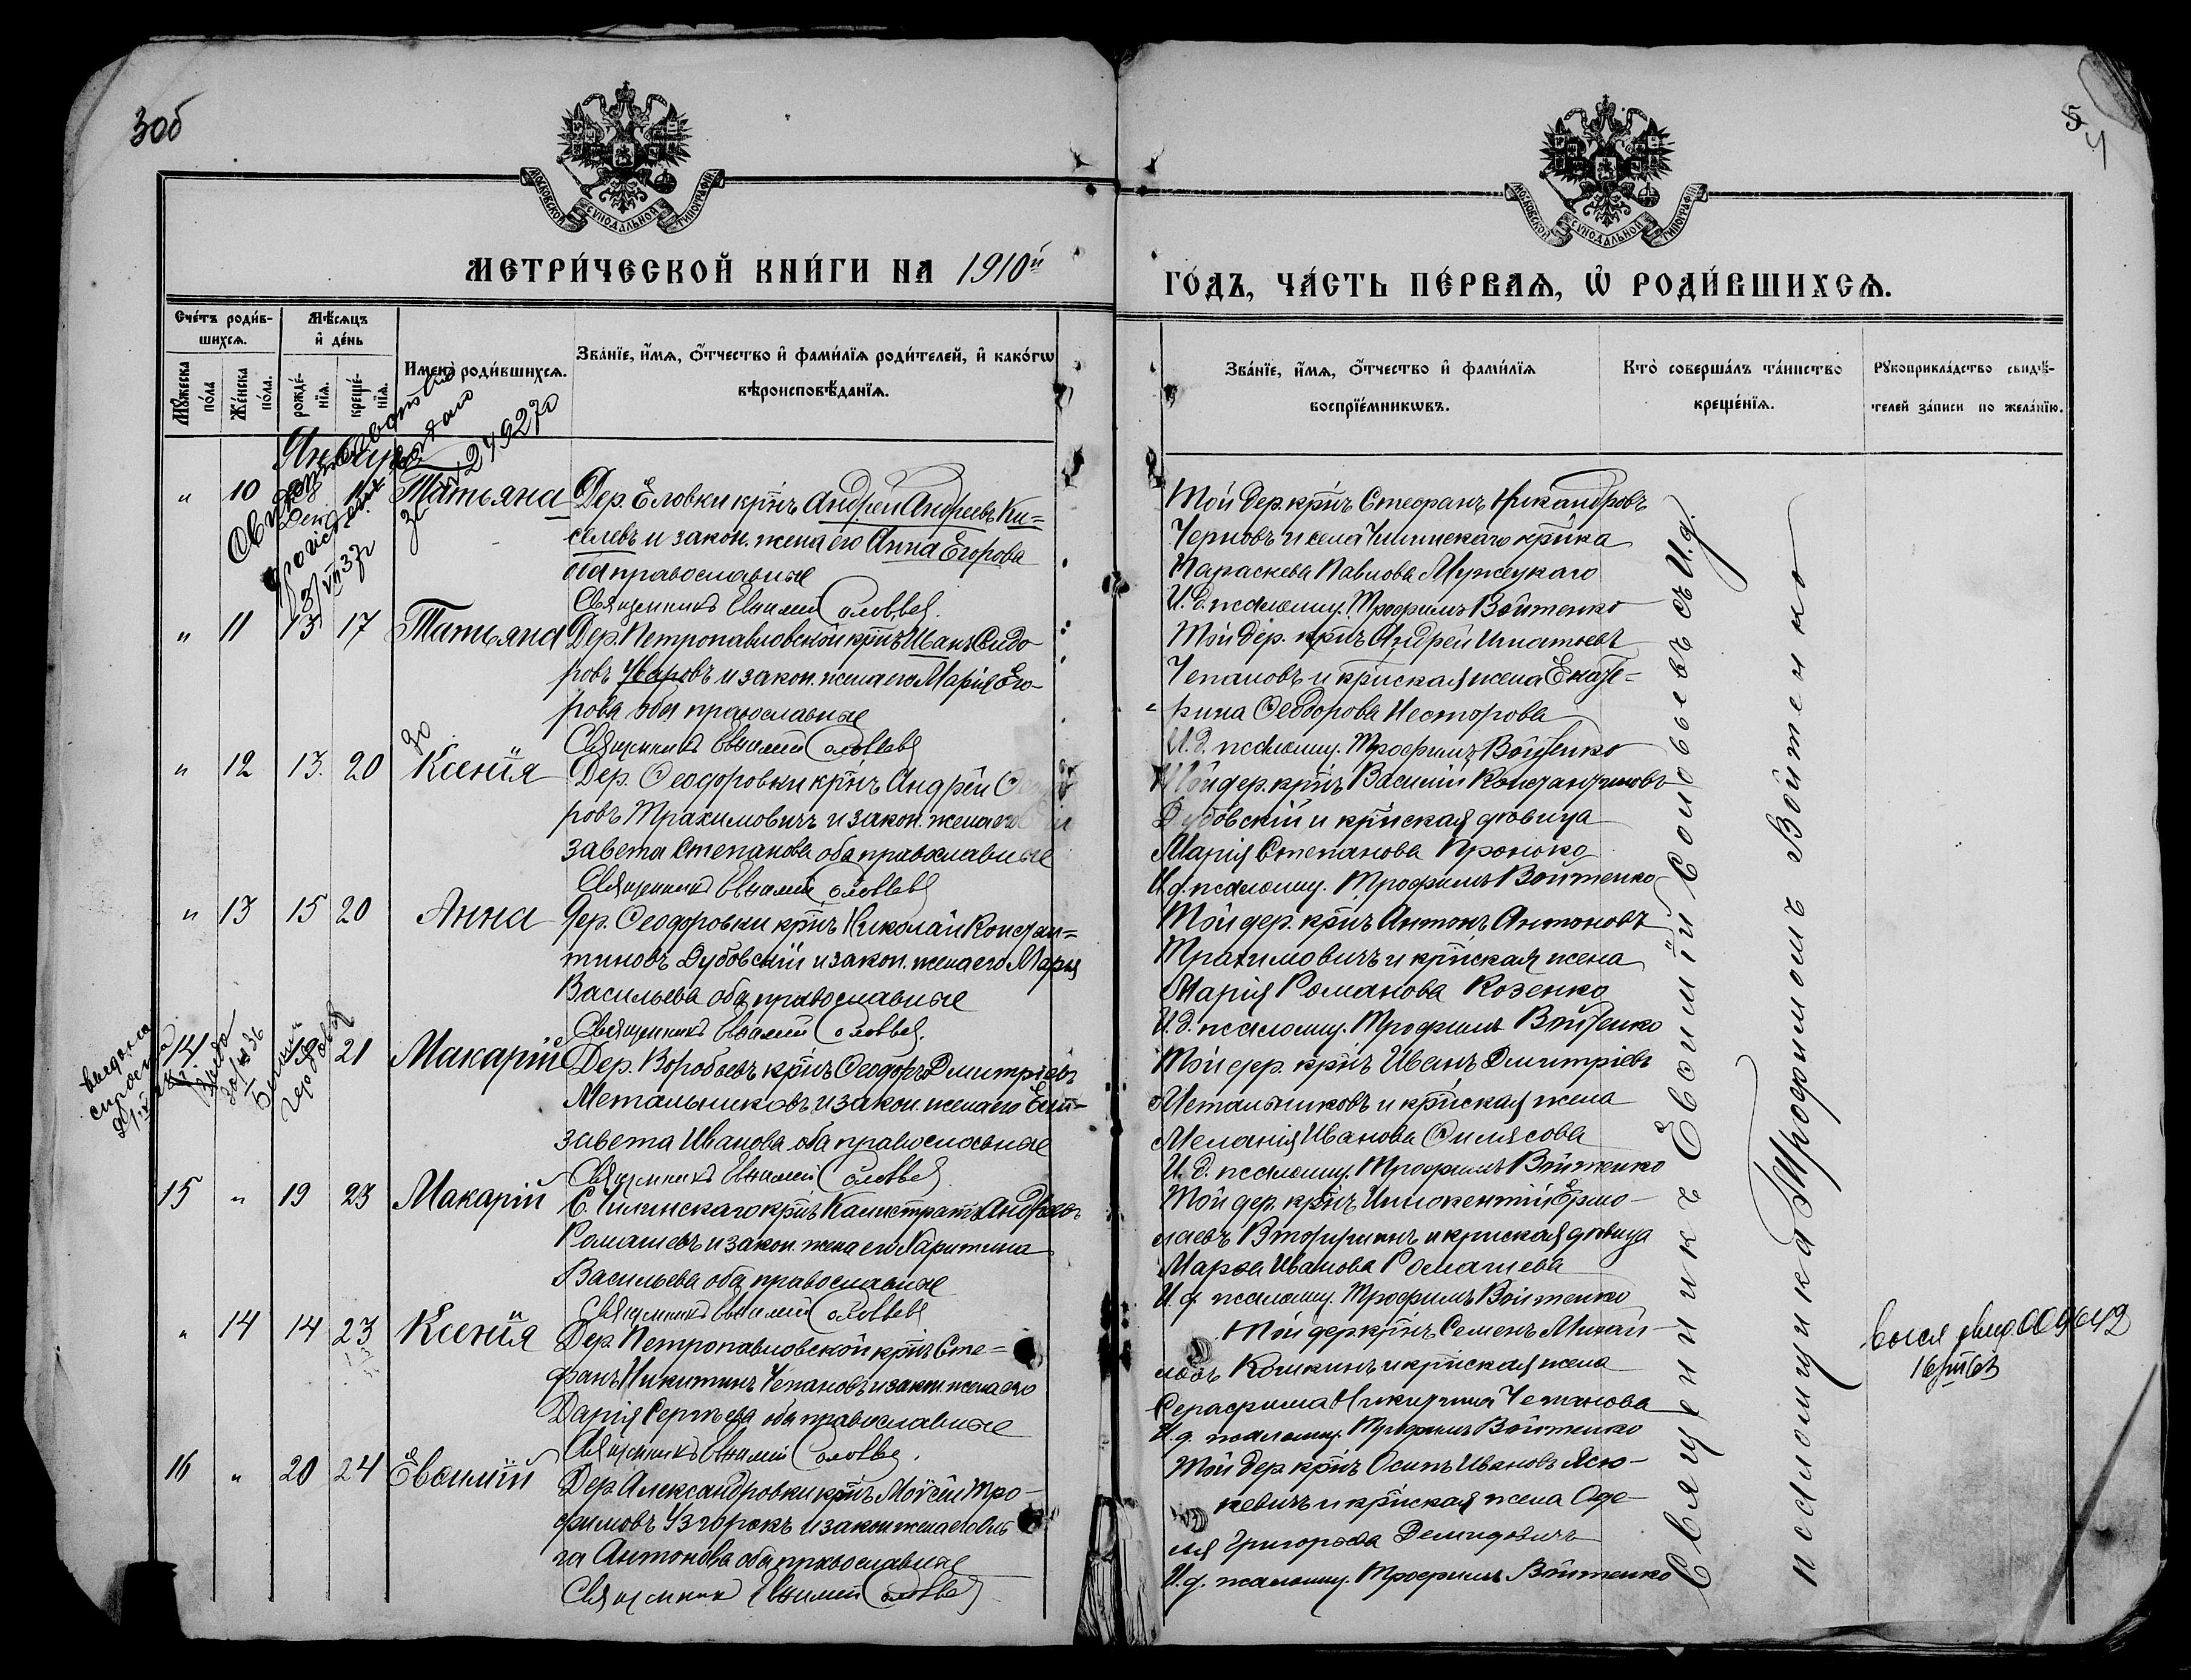 3об
5
4
МОСКОВСКОЙ СѴНОДАЛЬНОЙ ТИПОГРАФІИ
МОСКОВСКОЙ СѴНОДАЛЬНОЙ ТИПОГРАФІИ
МЕТРИ́ЧЕСКОЙ КНИ́ГИ НА 1910й
ГО́ДЪ, ЧА́СТЬ ПЕ́РВАѦ, Ѡ҆ РОДИ́ВШИХСѦ.
Сче́тъ роди́в-
шихсѧ.
Мѣ́сѧцъ
и҆ де́нь
Мꙋ́жеска
по́ла
Же́нска
по́ла.
рожде́-
нїѧ.
креще́-
нїѧ.
Имена̀ роди́вшихсѧ.
Зва́нїе, и҆́мѧ, ѻ҆́тчество и҆ фами́лїѧ роди́телей, и҆ како́гѡ
вѣроисповѣ́данїѧ.
Зва́нїе, и҆́мѧ, ѻ҆́тчество и҆ фами́лїѧ
воспрїе́мникѡвъ.
Кто̀ соверша́лъ та́инство
креще́нїѧ.
Рꙋкоприкла́дство свидѣ́-
телей за́писи по жела́нїю.
Январь
249270
" 10 11 Татьяна Дер. Еловки кр̃нъ Андрей Андреевъ Ки=
селевъ и закон. жена его Анна Егорова
оба православные
Священникъ Евѳимій Соловьев.
Той дер. кр̃нъ Стефанъ Никандровъ
Черновъ и села кр̃нка
Параскева Павлова
И. д. псаломщ. Трофимъ Войтенко
" 11 13 17 Татьяна Дер. Петропавловской кр̃нъ Иванъ Сидо
ровъ Уваровъ и закон. жена его Марія Его-
рова оба православные
Священникъ Евѳимій Соловьевъ
Той дер. кр̃нъ Андрей Игнатьевъ
Чепановъ и кр̃нская жена Екате=
рина Ѳеодорова Несторова
И. д. псаломщ. Трофимъ Войтенко
" 12 13. 20 Ксенія Дер. Ѳеодоровки кр̃нъ Андрей
ровъ Трахимовичъ и закон. жена его
завета Степанова оба православные
Священникъ Евѳимій Соловьевъ
Той дер. кр̃нъ Василій Константиновъ
Дубовскій и кр̃нская дѣвица
Марія Степанова Пронько
И. д. псаломщ. Трофимъ Войтенко
" 13 15 20 Анна Дер. Ѳеодоровки кр̃нъ Николай Констан=
тиновъ Дубовскій и закон. жена его Марья
Васильева оба православные
Священникъ Евѳимій Соловьев.
Той дер. кр̃нъ Антонъ Антоновъ
Трахимовичъ и кр̃нская жена
Марія Романова Козенко
И. д. псаломщ. Трофимъ Войтенко
14 19 21 Макарій Дер. Воробьевъ кр̃нъ Ѳеодоръ Дмитріевъ
Метальниковъ и закон. жена его Ели-
завета Иванова оба православные
Священникъ Евѳимій Соловьев
Той дер. кр̃нъ Иванъ Дмитріевъ
Метальниковъ и кр̃нская жена
Меланія Иванова Симясова
И. д. псаломщ. Трофимъ Войтенко
15 " 19 23 Макарій С. Чилинскаго кр̃нъ Калистратъ Андреевъ
Ромашевъ и закон. жена его Харитина
Васильева оба православные
Священникъ Евѳимій Соловьевъ
Той дер. кр̃нъ Иннокентій Ермо-
лаевъ Вторушинъ и кр̃нская дѣвица
Марѳа Иванова Ромашева
И. д. псаломщ. Трофимъ Войтенко
" 14 14 23 Ксенія Дер. Петропавловской кр̃нъ Сте=
фанъ Никитинъ Чепановъ и закон. жена его
Дарія Сергѣева оба православные
Священникъ Евѳимій Соловьев.
Той дер кр̃нъ Семенъ Михай-
ловъ Кошкинъ и кр̃нская жена
Серафима Никитина Чепанова
И. д. псаломщ. Трофимъ Войтенко
16 " 20 24 Евѳимій Дер. Александровки кр̃нъ Мойсей Тро-
фимовъ Узгорокъ и закон. жена его Оль
га Антонова оба православные
Священник Евѳимій Соловьев
Той дер. кр̃нъ Осипъ Ивановъ Ясю-
кевичъ и кр̃нская жена Оде-
Григорьева Демидовичъ
И. д. псаломщ. Трофимъ Войтенко
Священникъ Евѳимій Соловьевъ съ И. д.
псаломщика Трофимомъ Войтенко